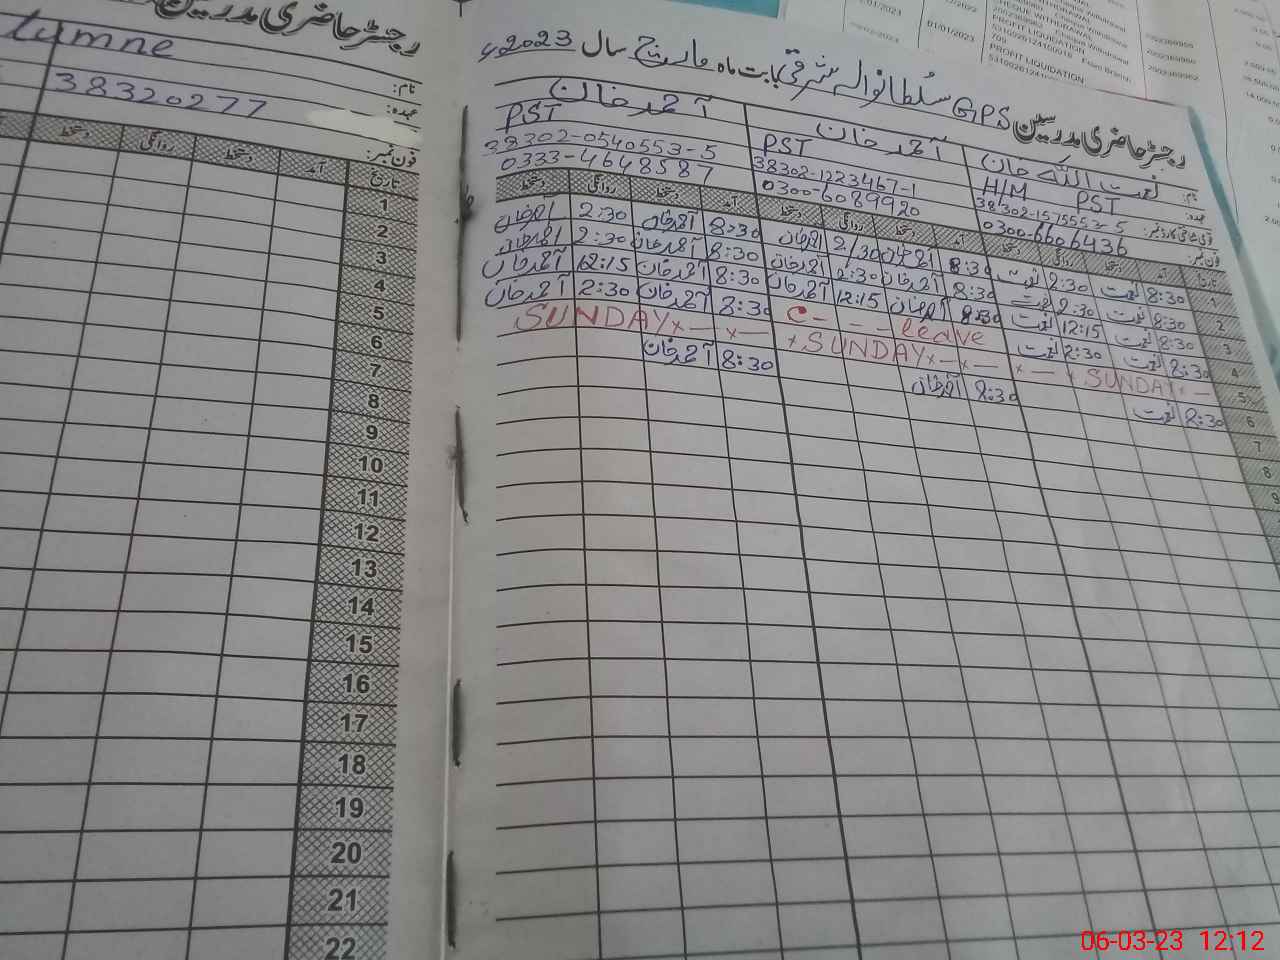 رجسٹر حاضری مدرسین GPS سُلطانوالہ شرقی بابت ماہ مارچ سال 2023ء
نام: نعمت اللہ خان
آحمد خان
آحمد خان
عہدہ: H/M PST
PST
PST
38302-1575553-5
38302-1223467-1
38302-0540553-5
فون نمبر: 0300-6606436
0300-6089920
0333-4648587
تاریخ آمد دستخط روانگی دستخط آمد دستخط روانگی دستخط آمد دستخط روانگی دستخط
1 8:30 نعمت 2:30 نعمت 8:30 آحمد خان 2:30 آحمد خان 8:30 آحمد خان 2:30 آحمد خان
2 8:30 نعمت 2:30 نعمت 8:30 آحمد خان 2:30 آحمد خان 8:30 آحمد خان 2:30 آحمد خان
3 8:30 نعمت 12:15 نعمت 8:30 آحمد خان 12:15 آحمد خان 8:30 آحمد خان 12:15 آحمد خان
4 8:30 نعمت 2:30 نعمت C - - - leave 8:30 آحمد خان 2:30 آحمد خان
5 SUNDAY x — x — x SUNDAY x — x — SUNDAY x — x —
6 8:30 نعمت 8:30 آحمد خان 8:30 آحمد خان
7
8
9
رجسٹر حاضری مدرسین
نام:
عہدہ:
38320277
فون نمبر:
تاریخ آمد دستخط روانگی دستخط
1
2
3
4
5
6
7
8
9
10
11
12
13
14
15
16
17
18
19
20
21
22
01/01/2023
PROFIT LIQUIDATION
PROFIT LIQUIDATION
06-03-23 12:12